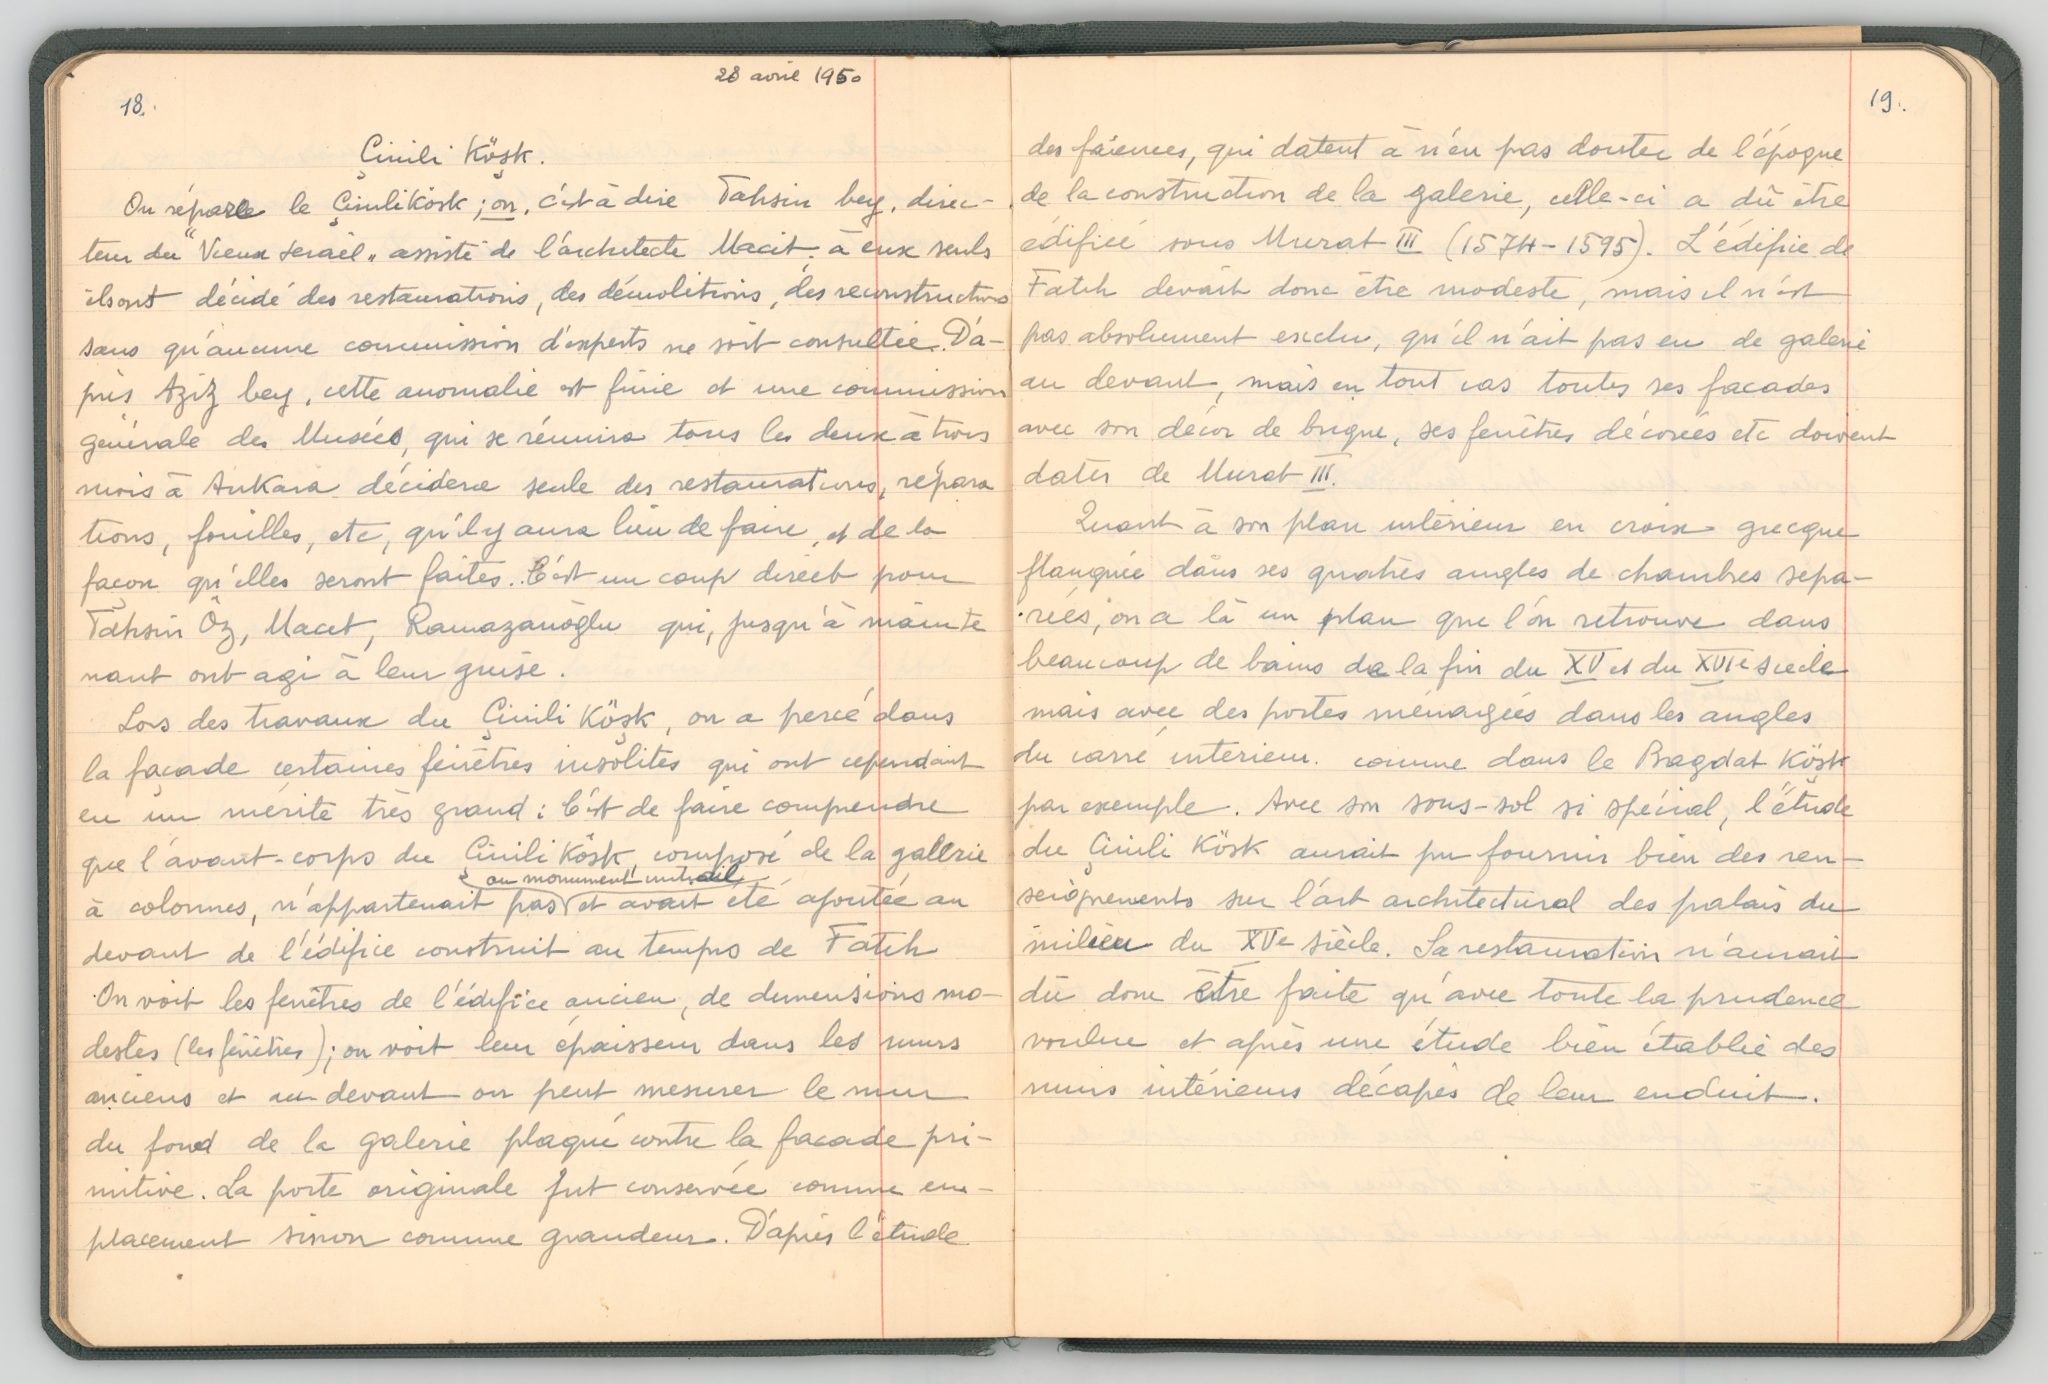 28 avril 1950
18.
Çinili Köşk.
On répare le Çinili Köşk ; on, c'est à dire Tahsin bey, direc-
teur du "Vieux serail" assisté de l'architecte Macit, à eux seuls
ils ont décidé des restaurations, des démolitions, des reconstructions
sans qu'aucune commission d'experts ne soit consultée. D'a-
près Aziz bey, cette anomalie est finie et une commission
générale des Musées, qui se réunira tous les deux à trois
mois à Ankara décidera seule des restaurations, répara
tions, fouilles, etc, qu'il y aura lieu de faire, et de la
façon qu'elles seront faites. C'est un coup direct pour
Tahsin Öz, Macit, Ramazanoğlu qui, jusqu'à mainte
nant ont agi à leur guise.
Lors des travaux du Çinili Köşk, on a percé dans
la façade certaines fenêtres insolites qui ont cependant
eu un mérite très grand : C'est de faire comprendre
que l'avant-corps du Çinili Köşk, composé de la gallerie
au monument initial
à colonnes, n'appartenait pas et avait été ajoutée au
devant de l'édifice construit au temps de Fatih
On voit les fenêtres de l'édifice ancien, de dimensions mo-
destes (les fenêtres) ; on voit leur épaisseur dans les murs
anciens et au devant on peut mesurer le mur
du fond de la galerie plaqué contre la facade pri-
mitive. La porte originale fut conservée comme em-
placement sinon comme grandeur. D'après l'étude
19.
des faïences, qui datent à n'en pas douter de l'époque
de la construction de la galerie, celle-ci a dû être
édifiée sous Murat III (1574-1595). L'édifice de
Fatih devait donc être modeste, mais il n'est
pas absolument exclu, qu'il n'ait pas eu de galerie
au devant, mais en tout cas toutes ses facades
avec son décor de brique, ses fenêtres décorées etc doivent
dater de Murat III.
Quant à son plan intérieur en croix grecque
flanquée dans ses quatres angles de chambres sepa-
rées, on a là un plan que l'on retrouve dans
beaucoup de bains de la fin du XV et du XVIe siecle
mais avec des portes ménagées dans les angles
du carré intérieur. comme dans le Bagdat Köşk
par exemple. Avec son sous-sol si spécial, l'étude
du Çinili Köşk aurait pu fournir bien des ren-
seignements sur l'art architectural des palais du
milieu du XVe siècle. Sa restauration n'aurait
dû donc être faite qu'avec toute la prudence
voulue et après une étude bien établie des
murs intérieurs décapés de leur enduit.